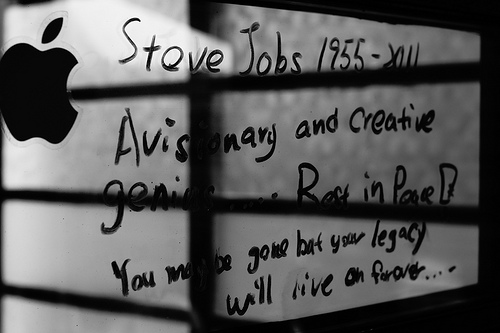 Steve Jobs 1955-2011
A visionary and creative
genius.... Rest in Peace
You may be gone but your legacy
will live on forever....